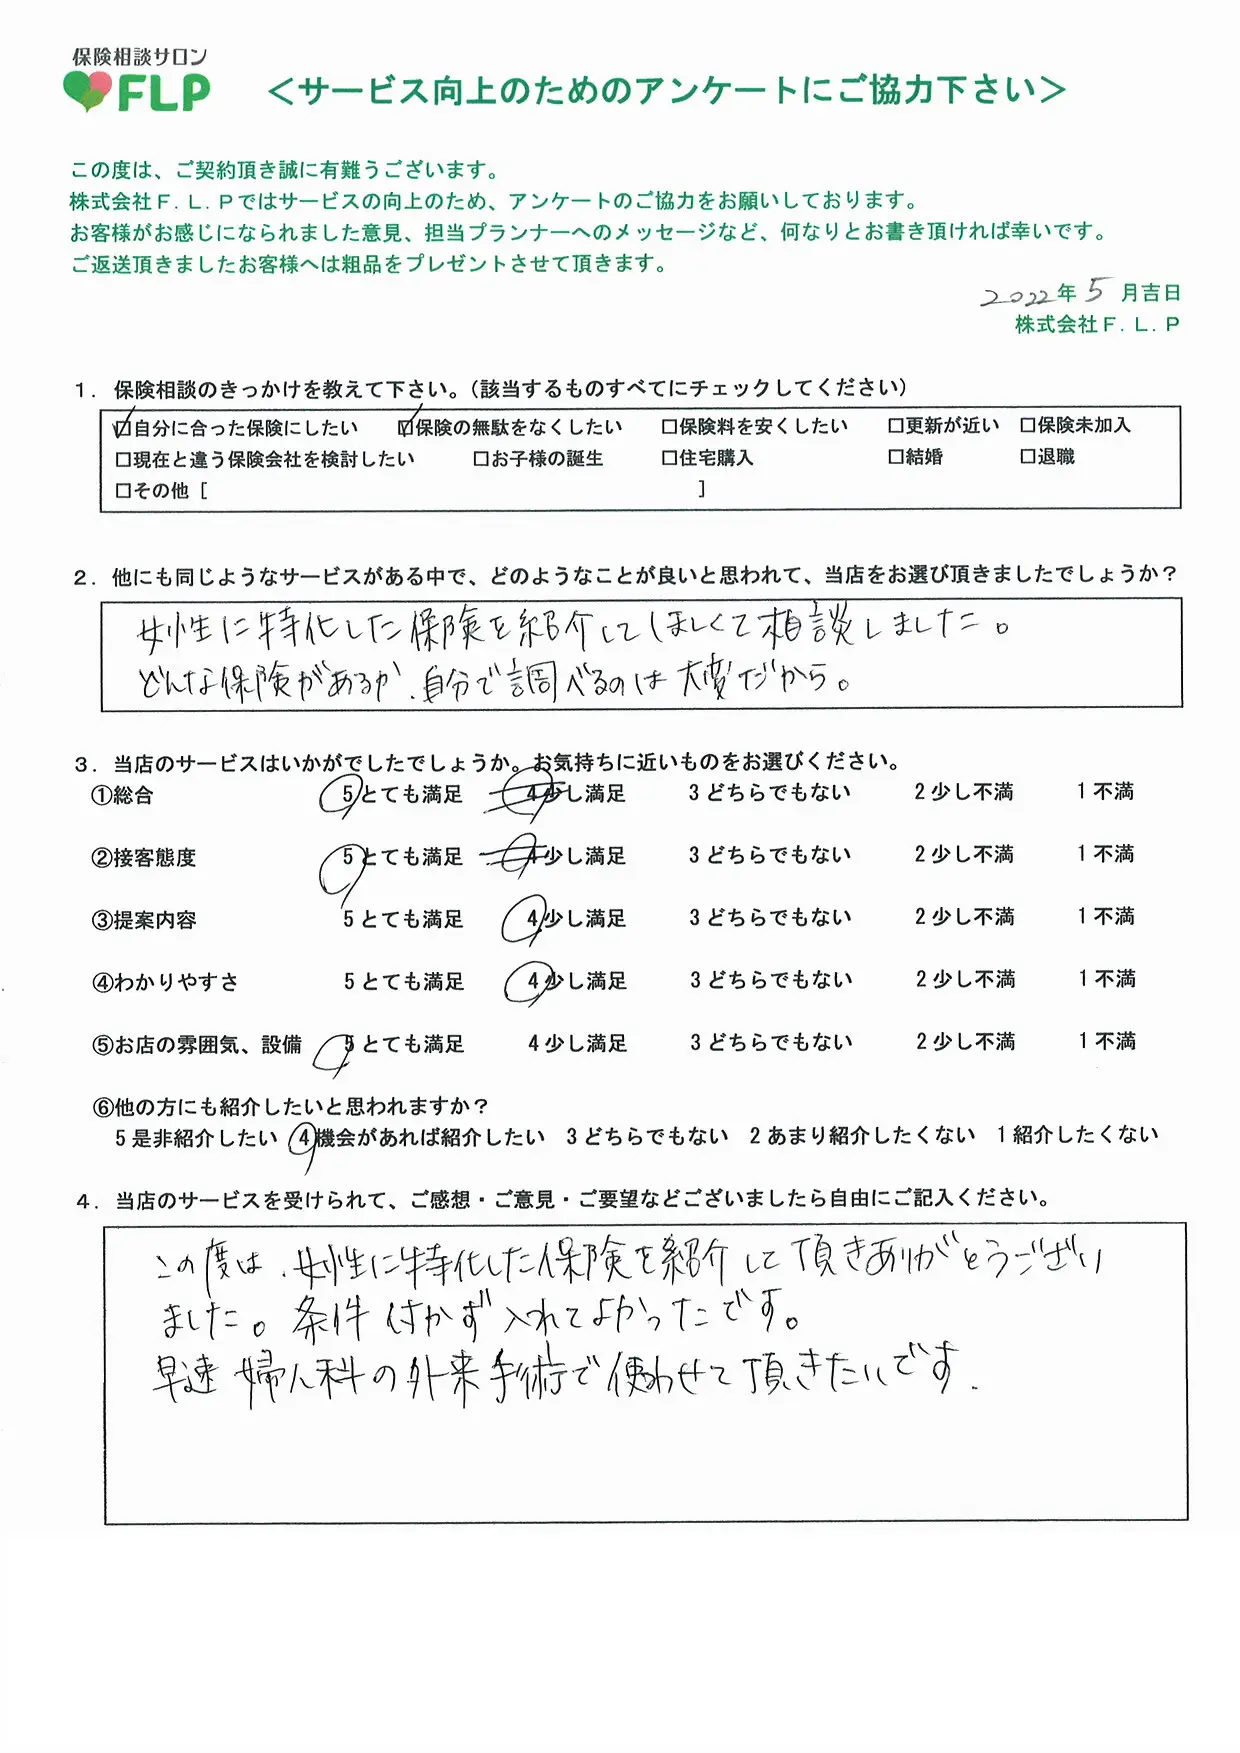 保険相談サロン
FLP
＜サービス向上のためのアンケートにご協力下さい＞
この度は、ご契約頂き誠に有難うございます。
株式会社Ｆ．Ｌ．Ｐではサービスの向上のため、アンケートのご協力をお願いしております。
お客様がお感じになられました意見、担当プランナーへのメッセージなど、何なりとお書き頂ければ幸いです。
ご返送頂きましたお客様へは粗品をプレゼントさせて頂きます。
2022年 5 月吉日
株式会社Ｆ．Ｌ．Ｐ
１．保険相談のきっかけを教えて下さい。（該当するものすべてにチェックしてください）
☑自分に合った保険にしたい ☑保険の無駄をなくしたい □保険料を安くしたい □更新が近い □保険未加入
□現在と違う保険会社を検討したい □お子様の誕生 □住宅購入 □結婚 □退職
□その他［ ］
２．他にも同じようなサービスがある中で、どのようなことが良いと思われて、当店をお選び頂きましたでしょうか？
女性に特化した保険を紹介してほしくて相談しました。
どんな保険があるか、自分で調べるのは大変だから。
３．当店のサービスはいかがでしたでしょうか。お気持ちに近いものをお選びください。
①総合 5 とても満足 4 少し満足 3 どちらでもない 2 少し不満 1 不満
②接客態度 5 とても満足 4 少し満足 3 どちらでもない 2 少し不満 1 不満
③提案内容 5 とても満足 4 少し満足 3 どちらでもない 2 少し不満 1 不満
④わかりやすさ 5 とても満足 4 少し満足 3 どちらでもない 2 少し不満 1 不満
⑤お店の雰囲気、設備 5 とても満足 4 少し満足 3 どちらでもない 2 少し不満 1 不満
⑥他の方にも紹介したいと思われますか？
5 是非紹介したい 4 機会があれば紹介したい 3 どちらでもない 2 あまり紹介したくない 1 紹介したくない
４．当店のサービスを受けられて、ご感想・ご意見・ご要望などございましたら自由にご記入ください。
この度は、女性に特化した保険を紹介して頂きありがとうござい
ました。条件付かず入れてよかったです。
早速婦人科の外来手術で使わせて頂きたいです.